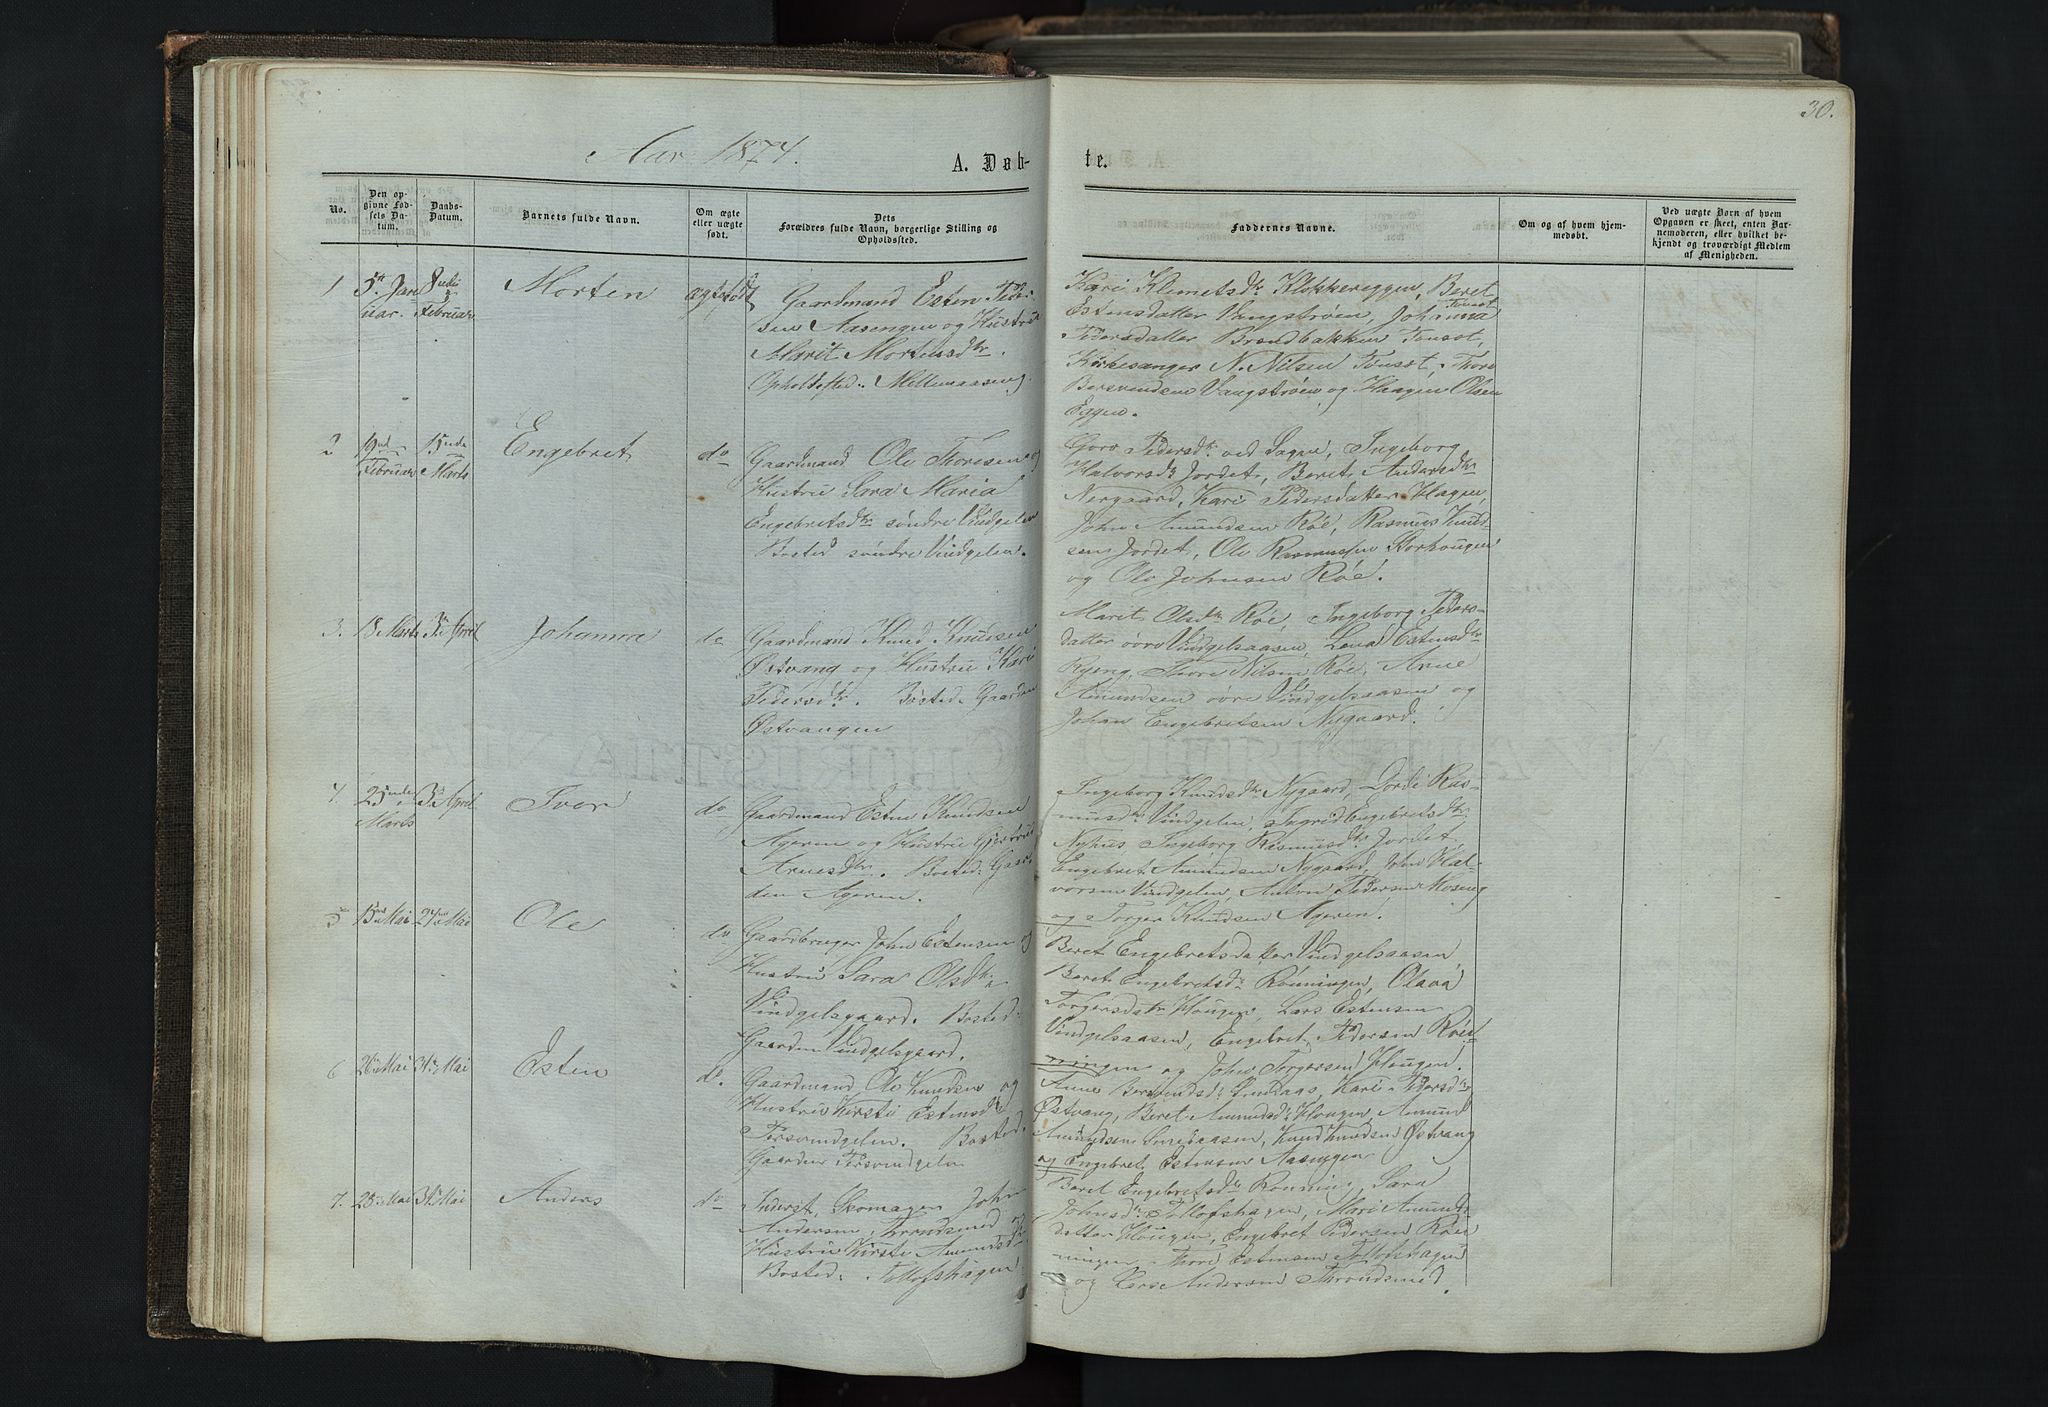 30.
Aar 1874.
A. Døb-
te.
No.
Den op-
givne Fød-
sels Da-
tum.
Daabs-
Datum.
Barnets fulde Navn.
Om ægte
eller uægte
født.
Dets
Forældres fulde Navn, borgerlige Stilling og
Opholdssted.
Faddernes Navne.
Om og af hvem hjem-
medøbt.
Ved uægte Børn af hvem
Opgaven er skeet, enten Bar-
nemoderen, eller hvilket be-
kjendt og troværdigt Medlem
af Menigheden.
1
5te Jan
uar.
8
Februar
Morten
ægtefødt
Gaardmand Esten Peder-
sen Aasengen og Hustru
Marit Mortensdtr.
Opholdssted: Mellemaaseng
Kari Klemetsdtr Klokkereggen, Beret
Estensdatter Vangstrøen, Johanna
Pedersdatter Brandbakken Tonset,
Kirkesanger N. Nilsen Tonset, Thore
Bersvendsen Vangstrøen, og Haagen Olsen
Eggen.
2
19
Februar
15
Marts
Engebret
do
Gaardmand Ole Thoresen og
Hustru Sara Maria
Engebretsdtr søndre Vindgelen
Bosted søndre Vindgelen.
Goro Pedersdtr ved Sagen, Ingeborg
Halvorsdr Jordet, Beret Andersdtr
Nergaard, Kari Pedersdatter Hagen,
John Amundsen Røe, Rasmus Knud-
sen Jordet, Ole Rasmussen Storhougen
og Ole Johnsen Røe.
3.
18 Marts
3 April
Johanne
do
Gaardmand Knud Knudsen
Østvang og Hustru Kari
Pedersdtr. Bosted: Gaarden
Østvangen
Marit Olsdtr Røe, Ingeborg Peders-
datter øvre Vindgelsaasen, Lena Estensdtr
Ryeng, Thore Nilsen Røe, Arne
Amundsen øvre Vindgelsaasen og
Johan Engebretsen Nygaard.
4.
25
Marts
3 April
Ivar
do
Gaardmand Esten Knudsen
Ageren og Hustru
Arnesdtr. Bosted: Gaar-
den Ageren.
Ingeborg Knudsdtr Nygaard, Dordi Ras-
musdtr Vindgelen, Ingrid Engebretsdtr
Nyhus Ingeborg Rasmusdtr Jordet,
Engebret Amundsen Nygaard, John Hal-
vorsen Vindgelen, Anton Pedersen Moseng
og Torger Knudsen Ageren.
5
15 Mai
24 Mai
Ole
do
Gaardbruger John Estensen og
Hustru Sara Olsdtr
Vindgelsgaard. Bosted:
Gaarden Vindgelsgaard.
Beret Engebretsdatter Vindgelsaasen,
Beret Engebretsdr Rønningen, Olava
Torgersdatr Hougen, Lars Estensen
Vindgelsaasen, Engebret Pedersen Røn-
ningen og John Torgersen Hougen.
6
20 Mai
31 Mai
Esten
do
Gaardmand Ole Knudsen og
Hustru Kirsti Estensdtr
Persvindgelen. Bosted.
Gaarden Persvindgelen
Anne Bersvendsdr Smedaas, Kari Pedersdtr
Østvang, Beret Amundsdr Hougen, Amund
Amundsen Smedaasen, Knud Knudsen Østvang
og Engebret Estensen Aaseggen
7.
25 Mai
31 Mai
Anders
do
Inderst, Skomager John
Andersen Trondsmed og
Hustru Kirsti Amundsdtr
Bosted: Tollofshagen
Beret Engebretsdtr Rønning, Sara
Johnsdr Tollofshagen, Mari Amunds-
datter Hougen, Engebret Pedersen Røn-
ningen Thore Estensen Tollofshagen
og Andersen Throndsmed.